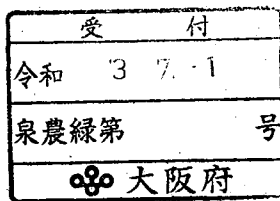 受 付
令和 3 7. -1
泉農緑第 号
大阪府